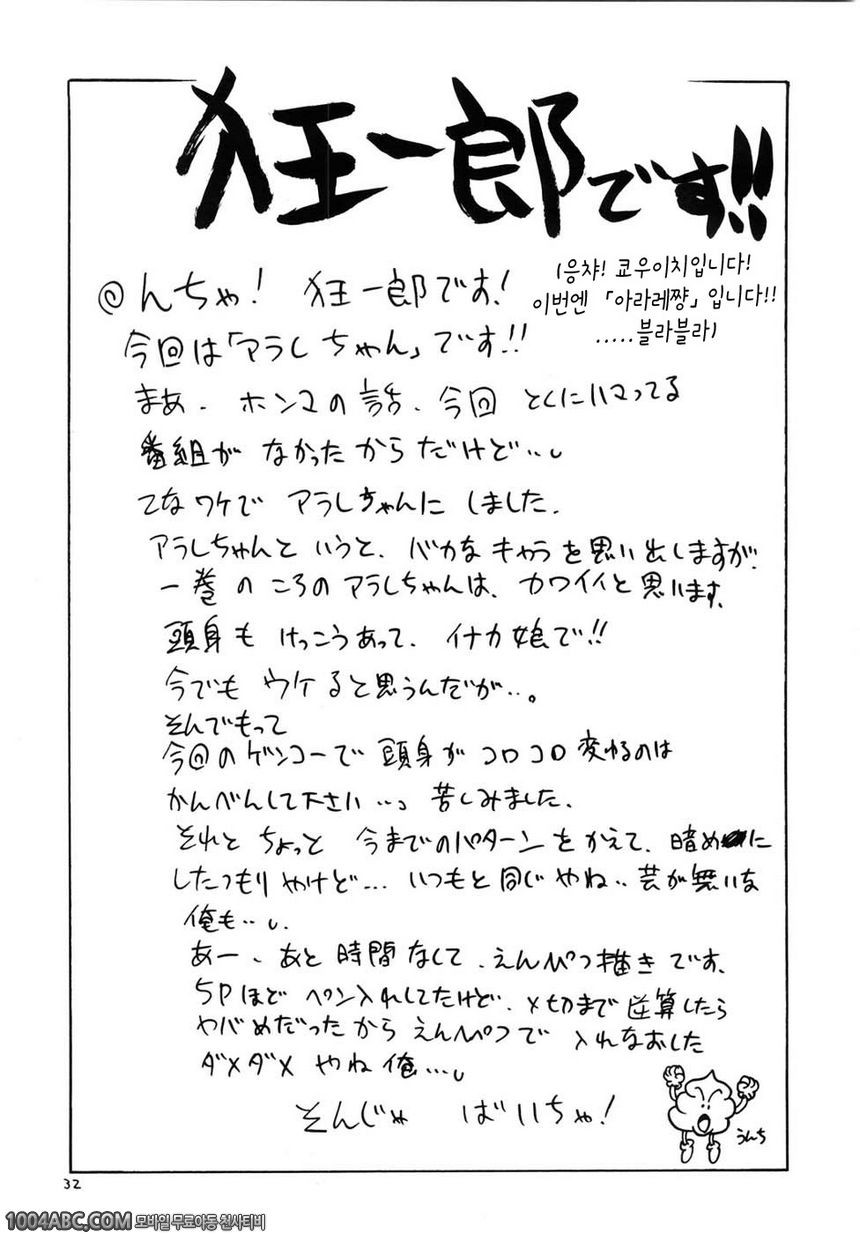 狂一郎です!!
@んちゃ! 狂一郎です!
今回は「アラレちゃん」です!!
(응챠! 쿄우이치입니다!
이번엔 「아라레쨩」 입니다!!
.....블라블라)
まあ、ホンマの話、今回 とくにハマってる
番組が なかったからだけど…
てなワケで アラレちゃんに しました.
アラレちゃんと いうと、バカな キャラ を思い出しますが、
一巻 の ころの アラレちゃんは、カワイイと 思います。
頭身も けっこうあって、イナカ娘で!!
今でも ウケると思うんだが…。
そんでもって
今回のゲンコーで 頭身が コロコロ 変わるのは
かんべんして下さい… 苦しみました.
それと ちょっと 今までのパターン をかえて、暗めに
したつもり やけど… いつもと 同じ やね‥ 芸が無いな
俺も‥
あー、あと 時間 なくて、えんぴつ描き です。
5Pほど ペン入れしてたけど、〆切まで 逆算したら
ヤバめだったから えんぴつで 入れなおした
ダメダメ やね 俺…
そんじゃ ばいちゃ!
うんち
32
1004ABC.COM 모바일 무료야동 천사티비